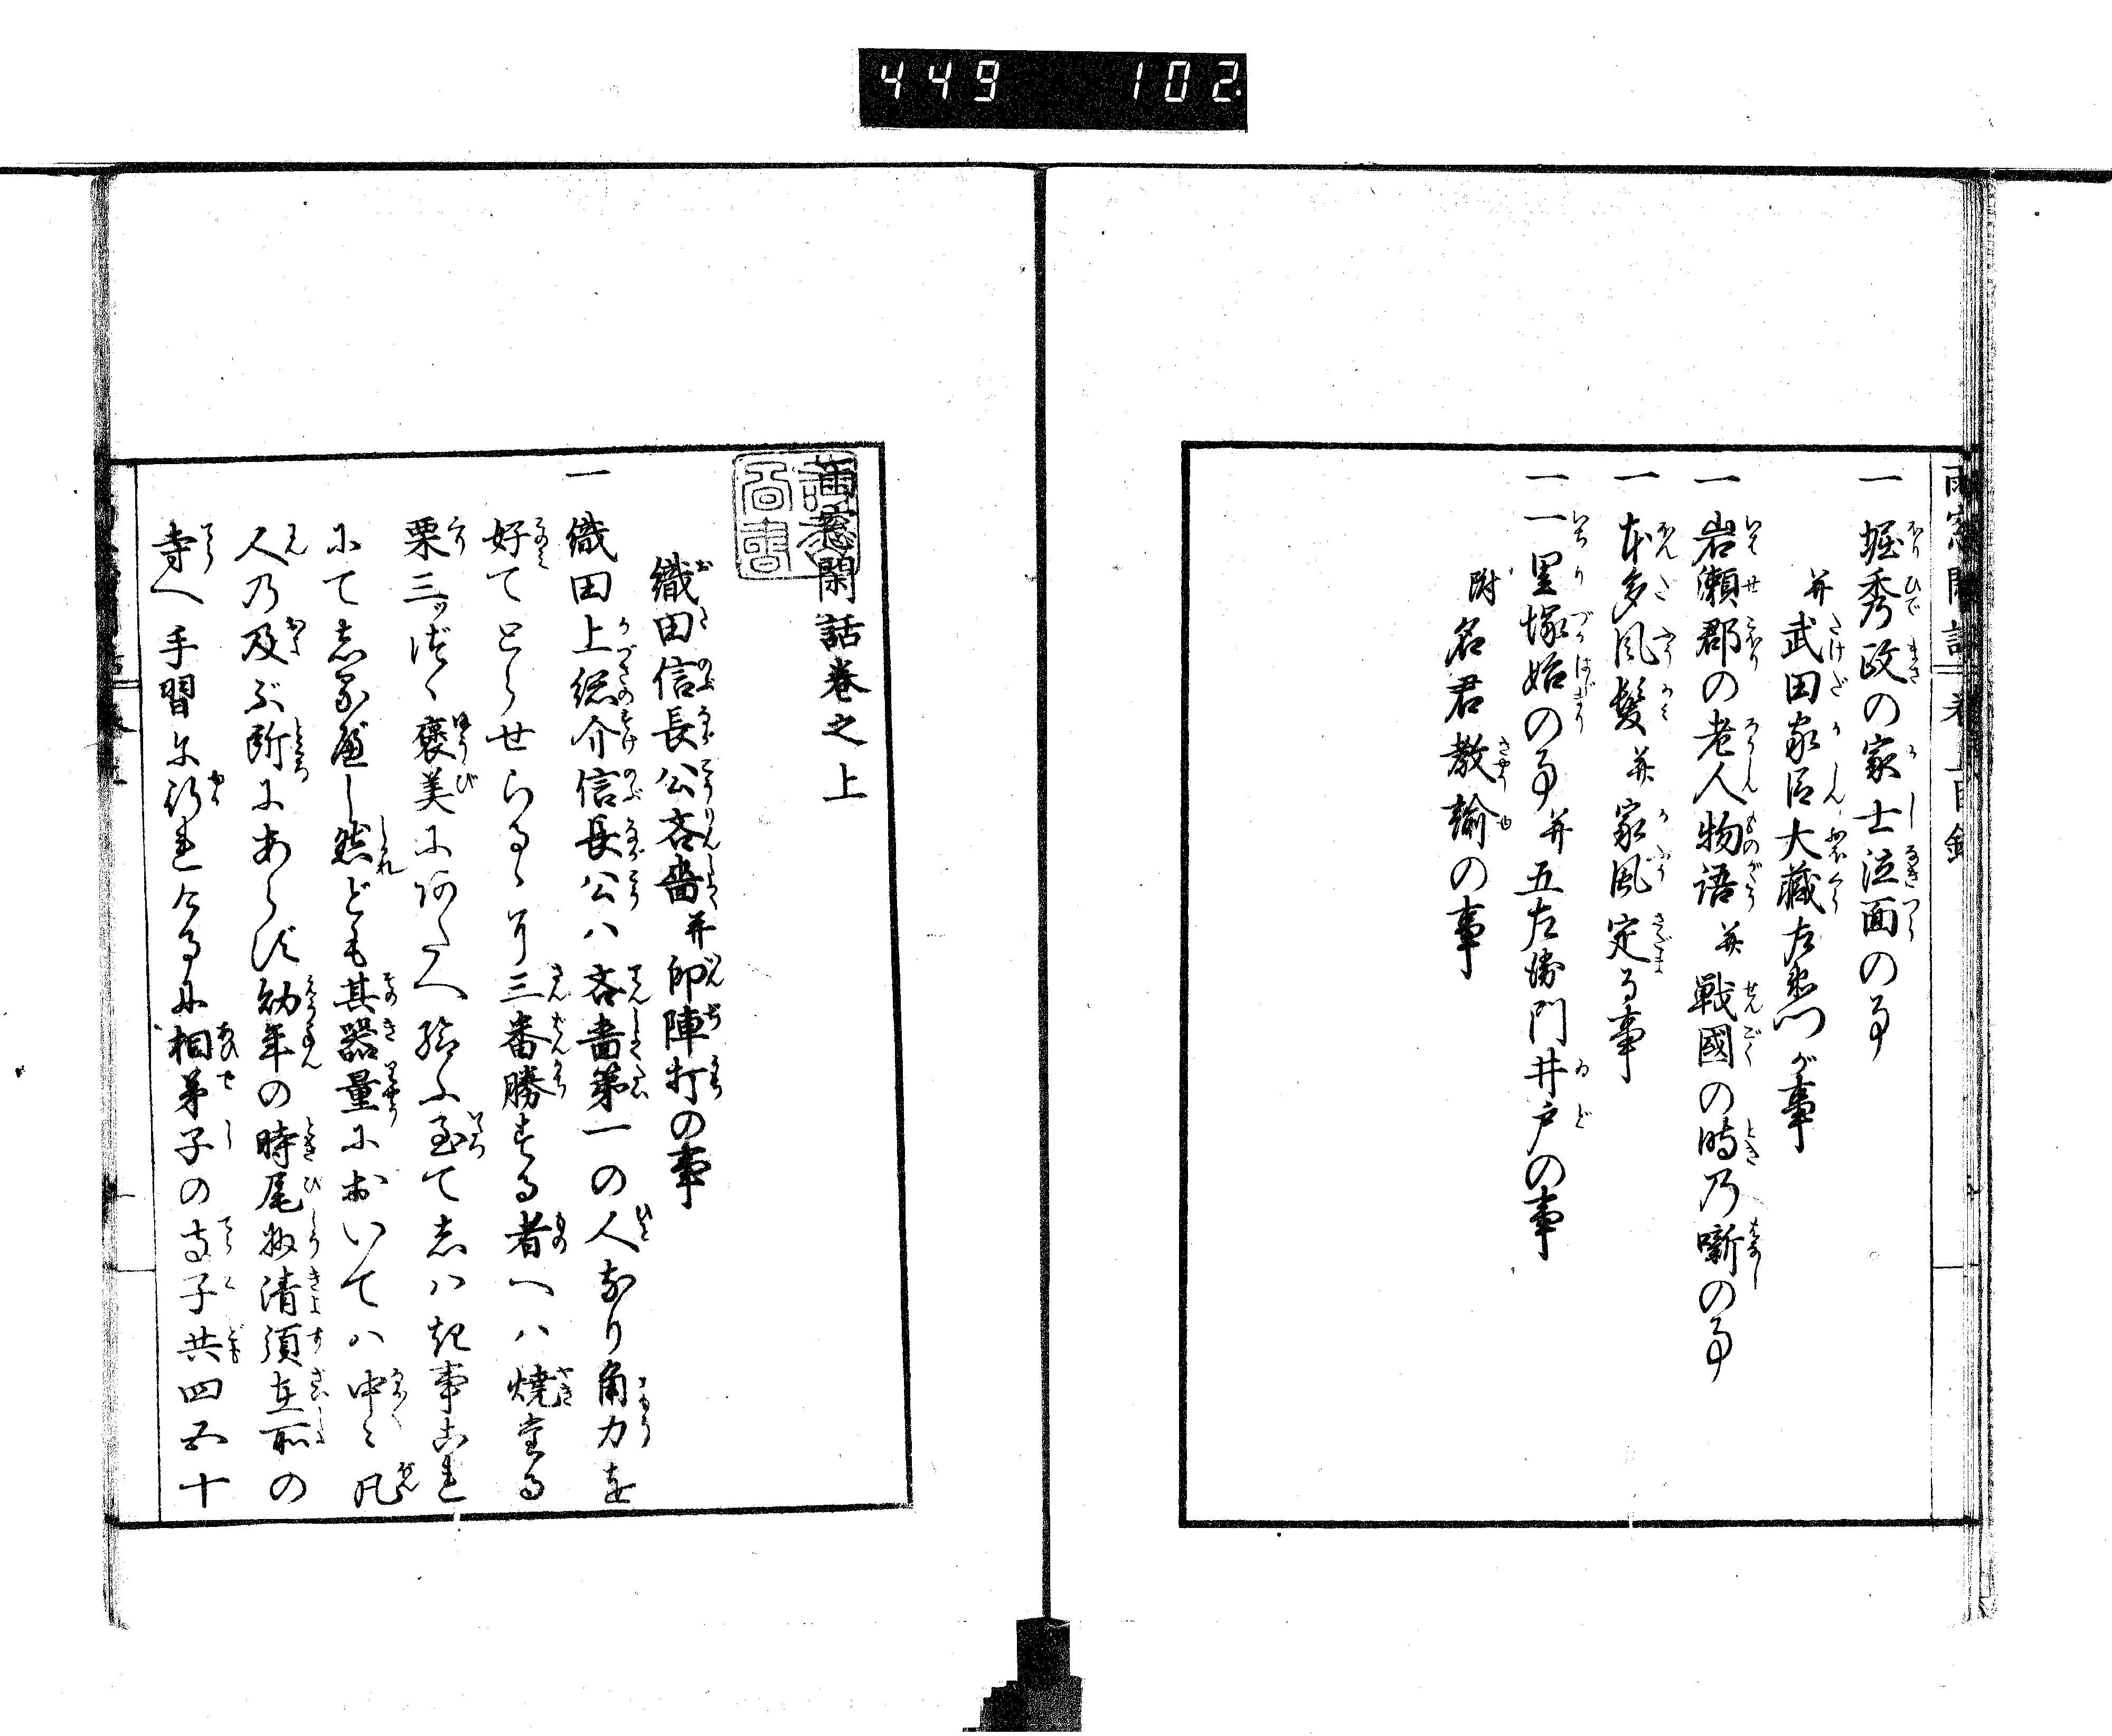 449 102
一 堀秀政の家士泣面の事
并武田家臣大藏左衛門が事
一 岩瀬郡の老人物語并戦國の時乃噺の事
一 本多風髪并家風定る事
一 一里塚始の事并五左衛門井戸の事
附名君教諭の事
雨窓閑話卷之上
織田信長公吝嗇并印陣打の事
一 織田上総介信長公ハ吝嗇第一の人なり角力を
好てとらせらるゝに三番勝する者へハ焼たる
栗三ツ づゝ褒美にあたへ給ふ至てしハき事これ
にてしるべし然ども其器量においてハ中々凡
人乃及ぶ所にあらず幼年の時尾州清須在所の
寺へ手習に行れける に相弟子の寺子共四五十